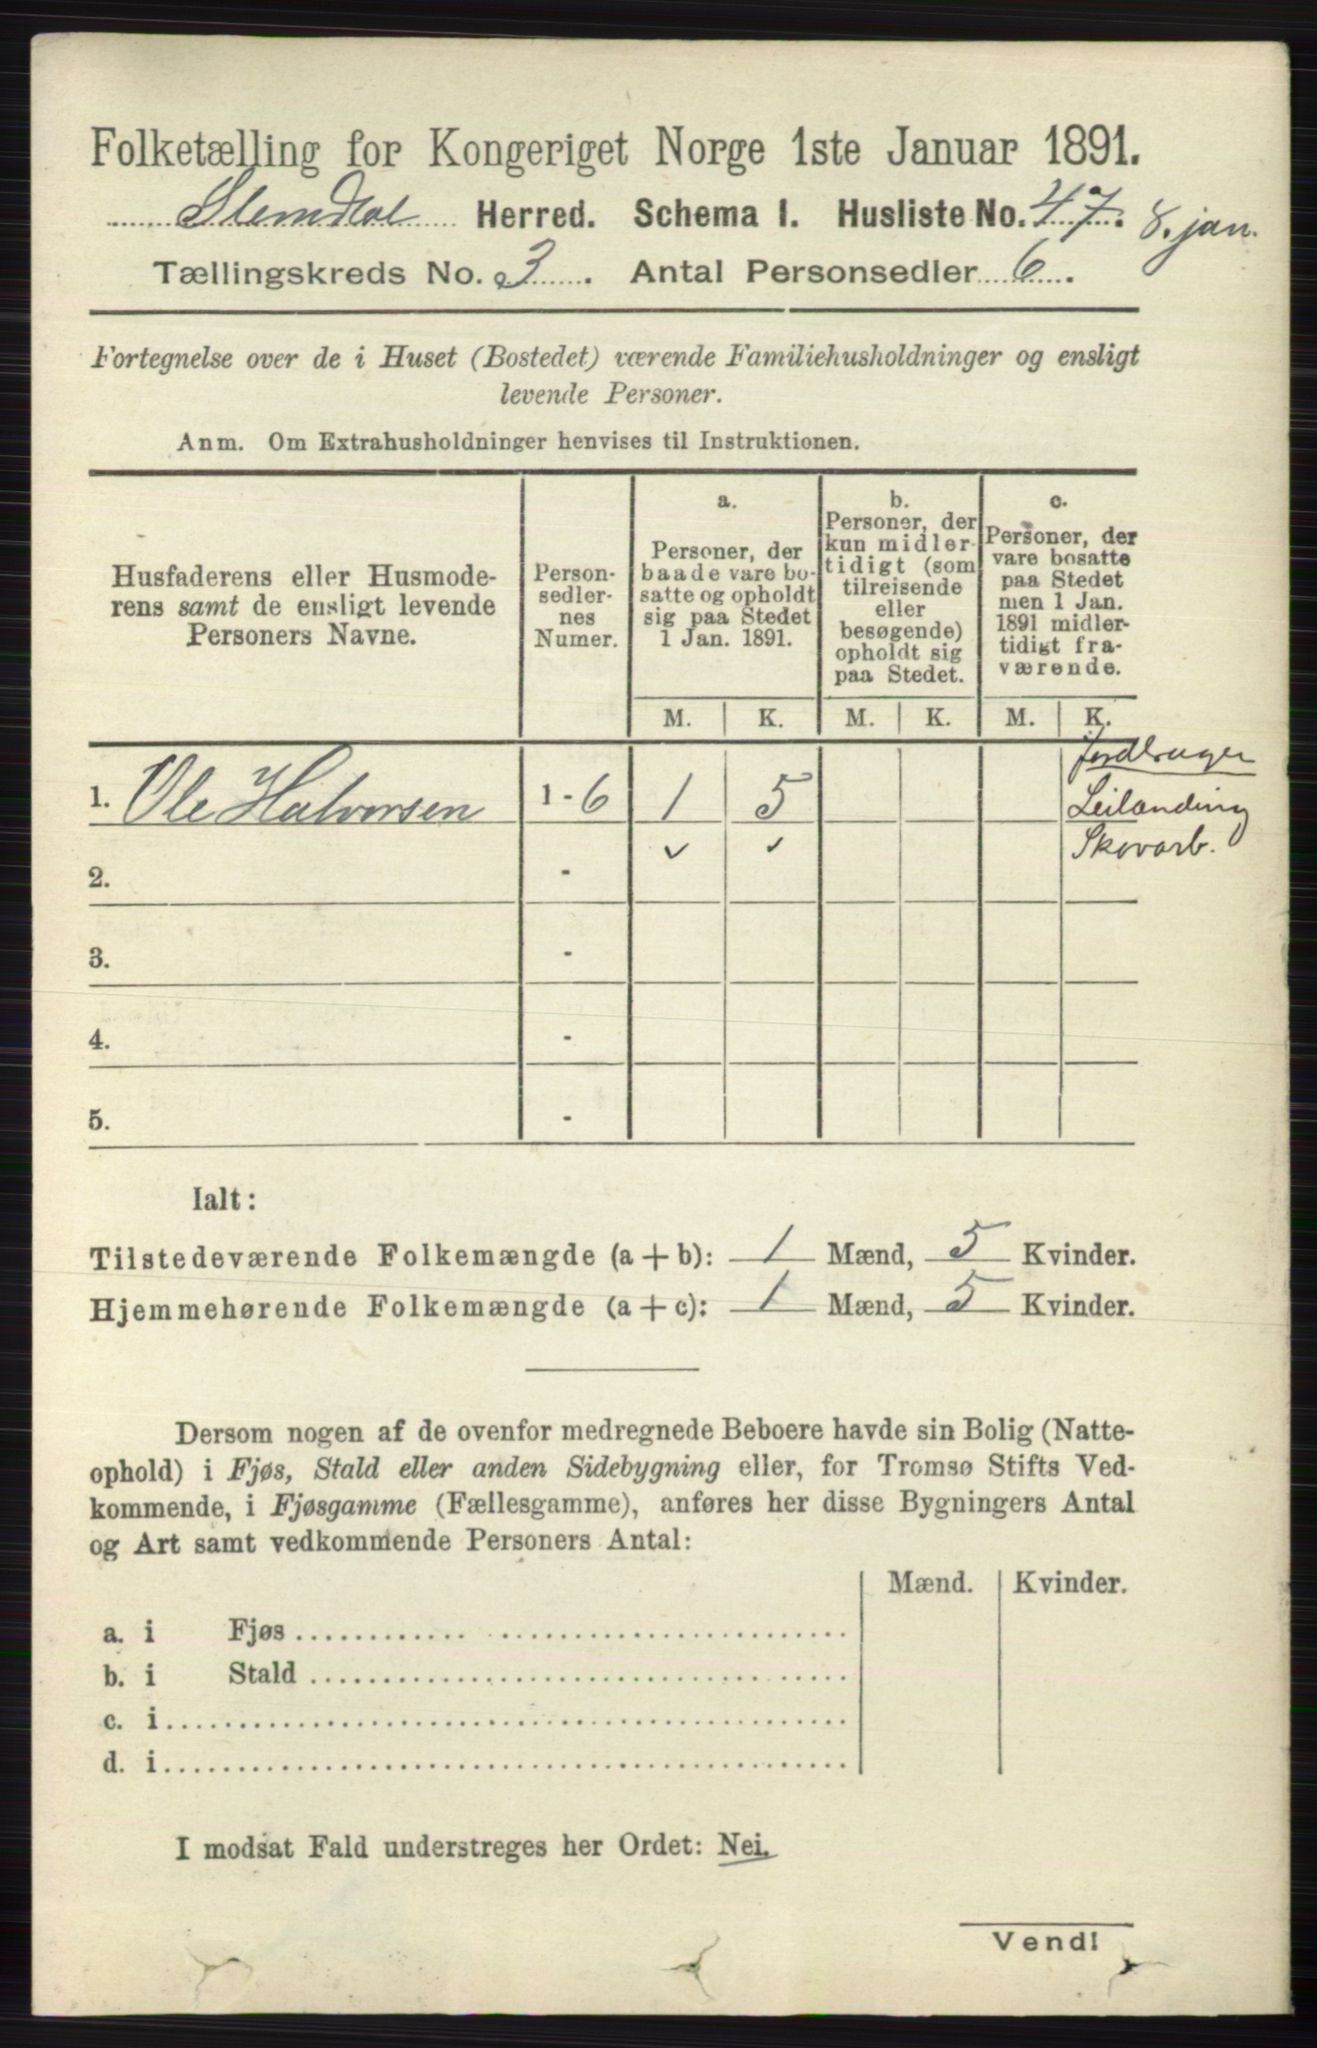 Folketælling for Kongeriget Norge 1ste Januar 1891.
Slemdal Herred. Schema I. Husliste No. 47. 8. jan.
Tællingskreds No. 3. Antal Personsedler 6.
Fortegnelse over de i Huset (Bostedet) værende Familiehusholdninger og ensligt
levende Personer.
Anm. Om Extrahusholdninger henvises til Instruktionen.
Husfaderens eller Husmode-
rens samt de ensligt levende
Personers Navne.
Person-
sedler-
nes
Numer.
a.
Personer, der
baade vare bo-
satte og opholdt
sig paa Stedet
1 Jan. 1891.
b.
Personer, der
kun midler-
tidigt (som
tilreisende
eller
besøgende)
opholdt sig
paa Stedet.
c.
Personer, der
vare bosatte
paa Stedet
men 1 Jan.
1891 midler-
tidigt fra-
værende.
M. K. M. K. M. K.
Jordbruger
1. Ole Halvorsen 1 - 6 1 5 Leilænding
Skovarb.
2. -
3. -
4. -
5. -
Ialt:
Tilstedeværende Folkemængde (a + b): 1 Mænd, 5 Kvinder.
Hjemmehørende Folkemængde (a + c): 1 Mænd, 5 Kvinder.
Dersom nogen af de ovenfor medregnede Beboere havde sin Bolig (Natte-
ophold) i Fjøs, Stald eller anden Sidebygning eller, for Tromsø Stifts Ved-
kommende, i Fjøsgamme (Fællesgamme), anføres her disse Bygningers Antal
og Art samt vedkommende Personers Antal:
Mænd. Kvinder.
a. i Fjøs
b. i Stald
c. i
d. i
I modsat Fald understreges her Ordet: Nei.
Vend!